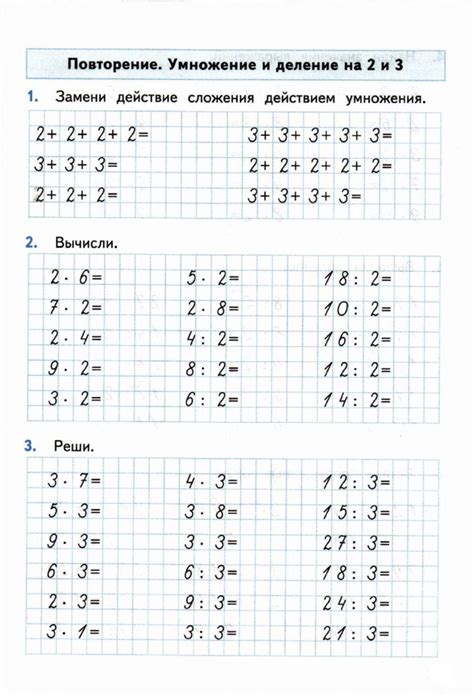 Повторение. Умножение и деление на 2 и 3
1. Замени действие сложения действием умножения.
2+ 2+ 2+ 2= 3+ 3+ 3+ 3+ 3=
3+ 3+ 3= 2+ 2+ 2+ 2+ 2=
2+ 2+ 2= 3+ 3+ 3+ 3=
2. Вычисли.
2 · 6= 5 · 2= 18 : 2=
7 · 2= 2 · 8= 10 : 2=
2 · 4= 4 : 2= 16 : 2=
9 · 2= 8 : 2= 12 : 2=
3 · 2= 6 : 2= 14 : 2=
3. Реши.
3 · 7= 4 · 3= 12 : 3=
5 · 3= 3 · 8= 15 : 3=
9 · 3= 3 · 3= 27 : 3=
6 · 3= 6 : 3= 18 : 3=
2 · 3= 9 : 3= 24 : 3=
3 · 1= 3 : 3= 21 : 3=